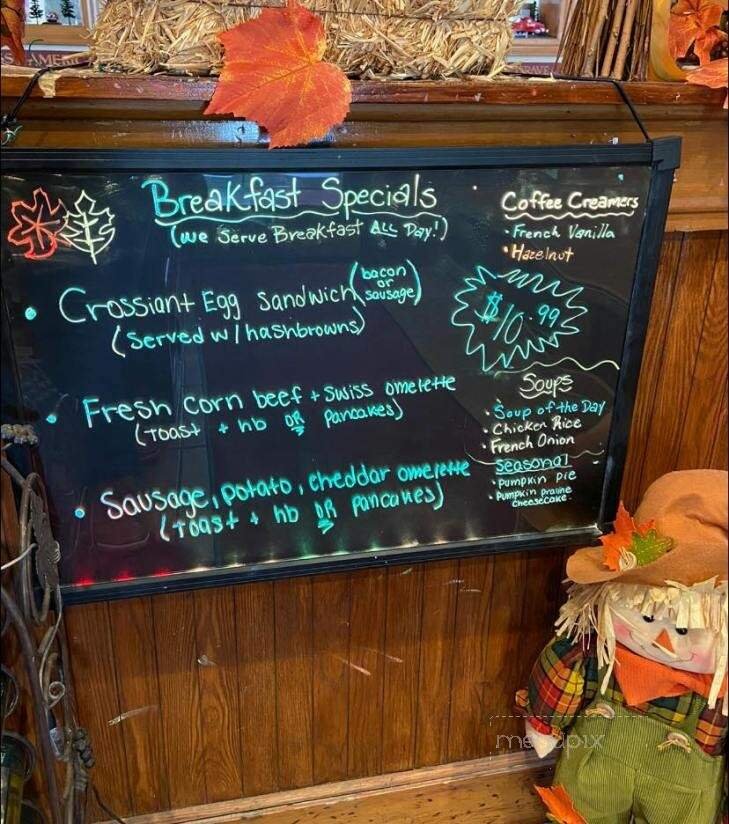 Breakfast Specials
(We Serve Breakfast ALL Day!)
• Crossiant Egg Sandwich (bacon or sausage)
(Served w/hashbrowns)
• Fresh Corn beef + Swiss omelette
(Toast + hb OR pancakes)
• Sausage, potato, cheddar omelette
(Toast + hb OR pancakes)
Coffee Creamers
• French Vanilla
• Hazelnut
$10.99
Soups
• Soup of the Day
• Chicken Rice
• French Onion
Seasonal
• Pumpkin Pie
• Pumpkin praline
cheesecake
menupix